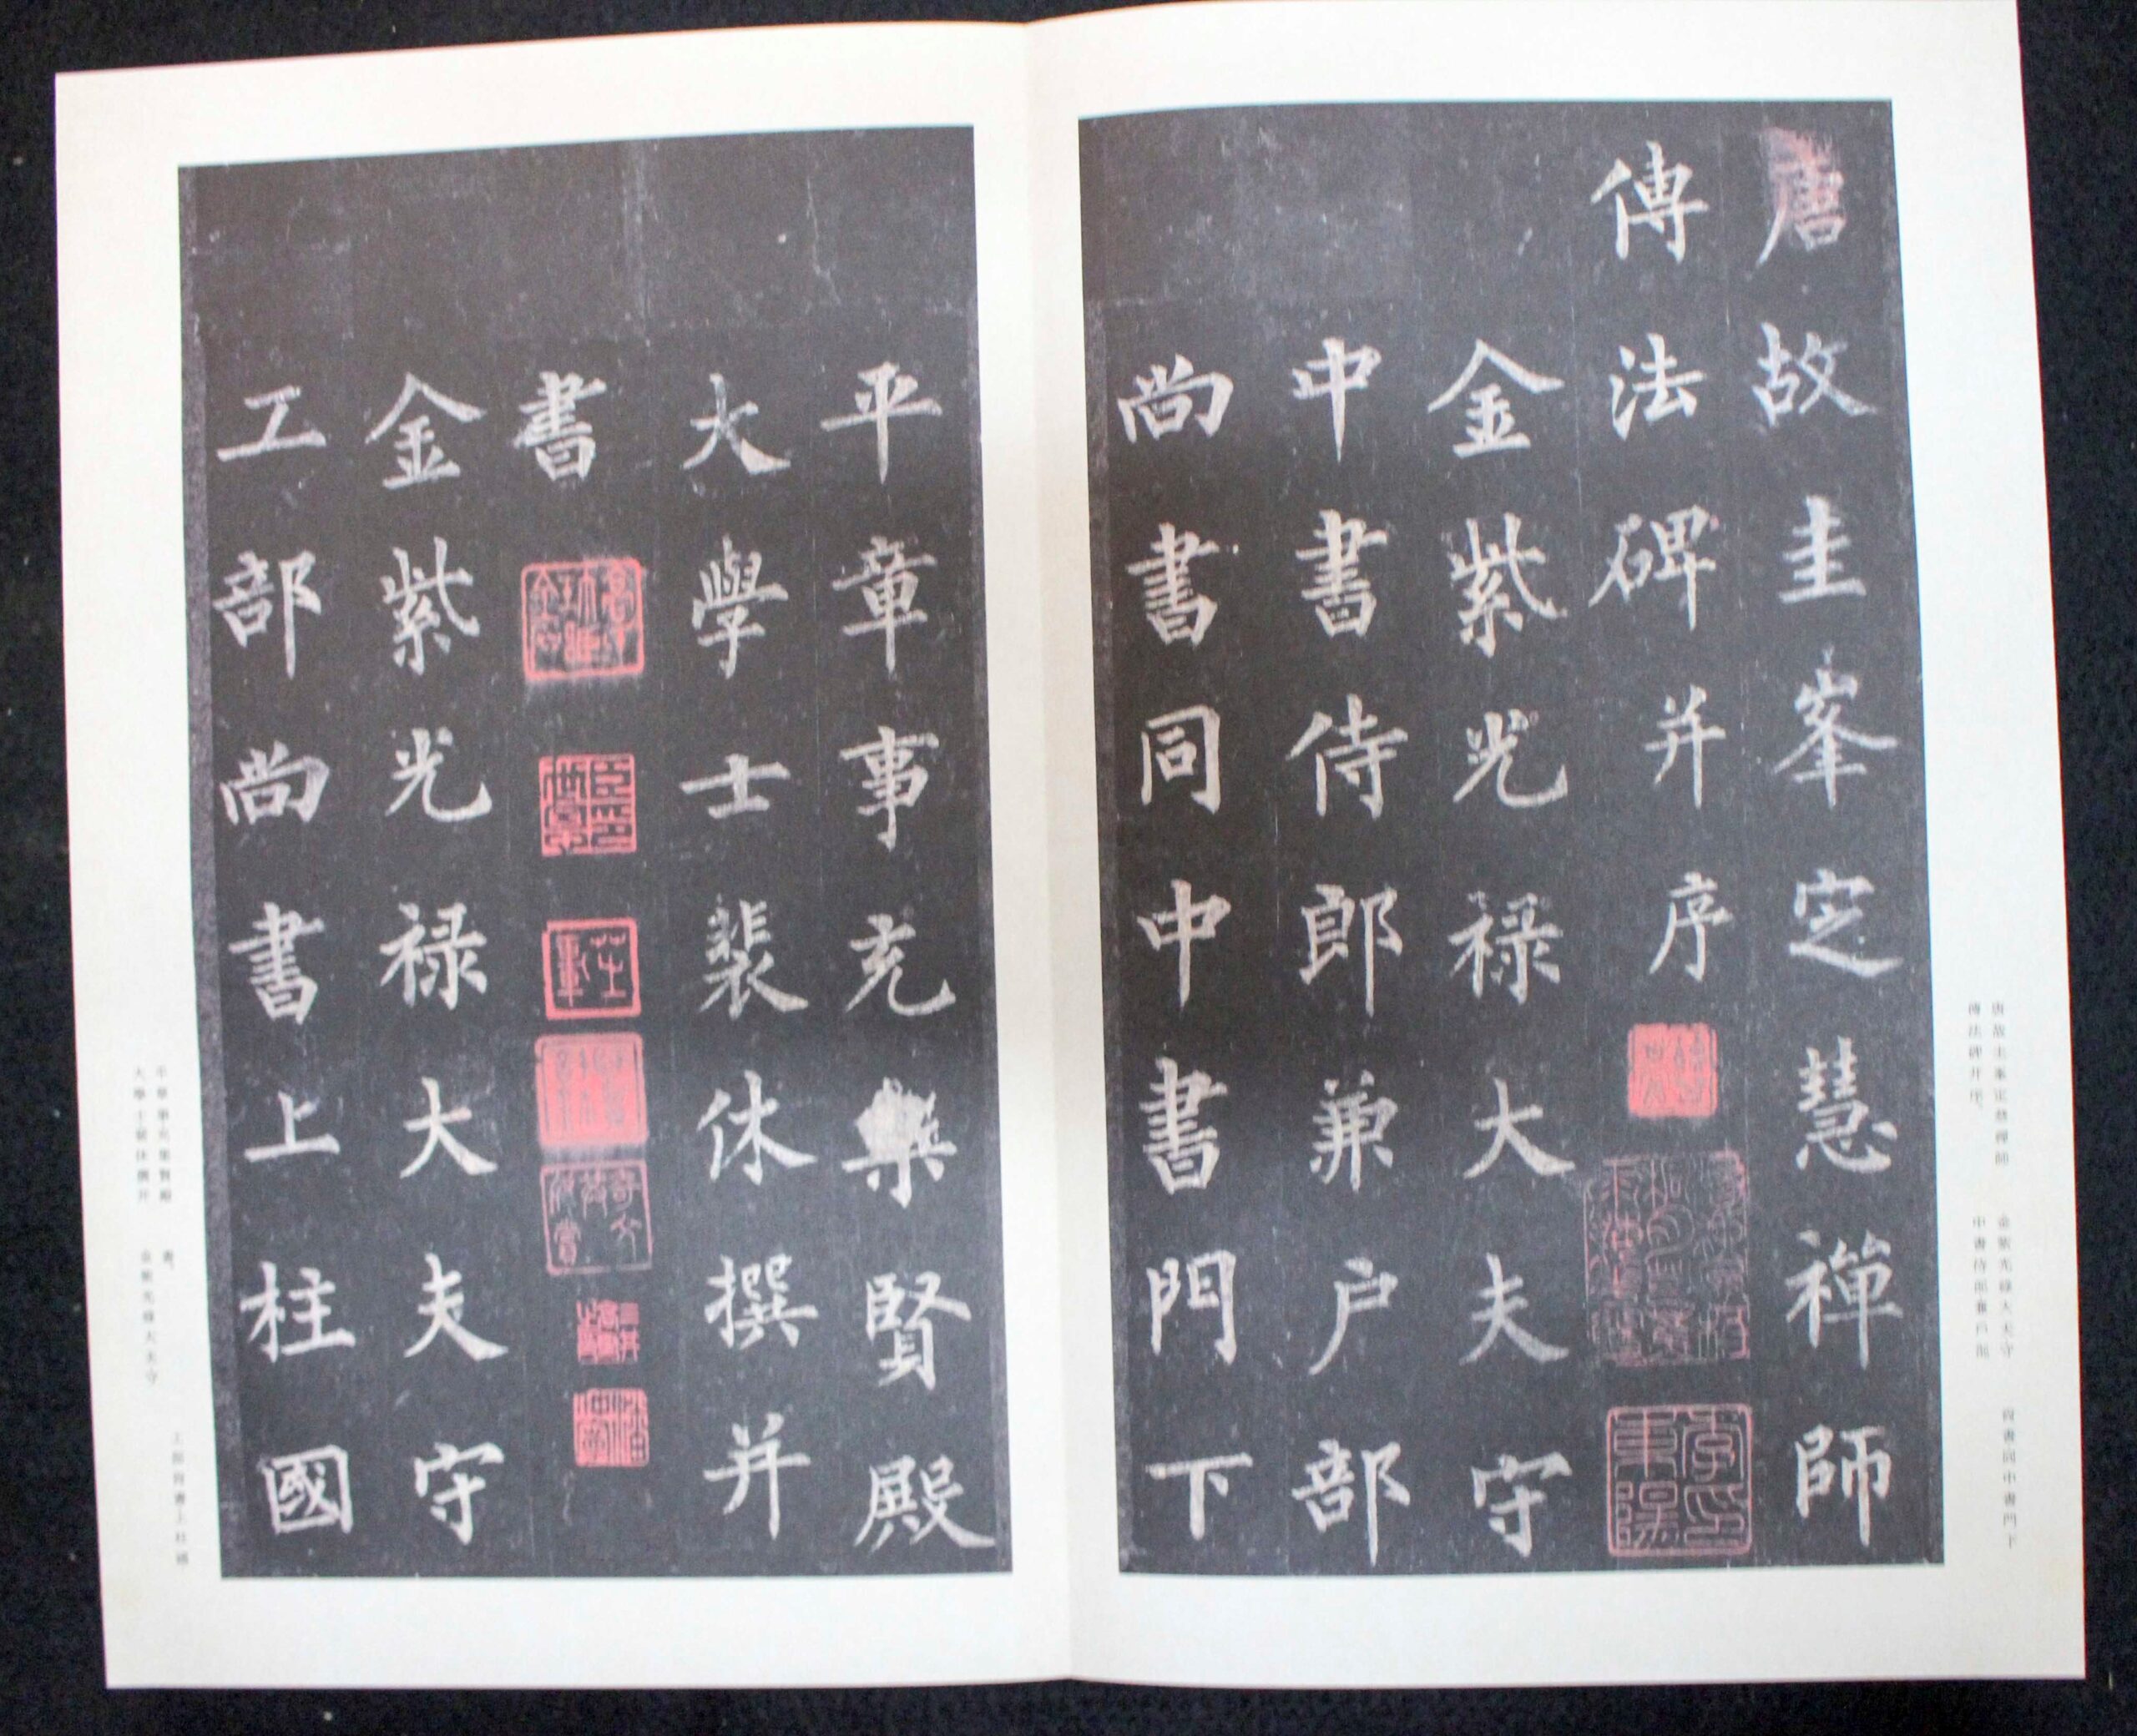 唐故圭峯定慧禪師
傳法碑并序
金紫光祿大夫守
中書侍郎兼戶部
尚書同中書門下
平章事充集賢殿
大學士裴休撰并
書
金紫光祿大夫守
工部尚書上柱國
唐故圭峯定慧禪師
傳法碑并序、
金紫光祿大夫守
中書侍郎兼戶部
尚書同中書門下
平章事充集賢殿
大學士裴休撰并
書、
金紫光祿大夫守
工部尚書上柱國